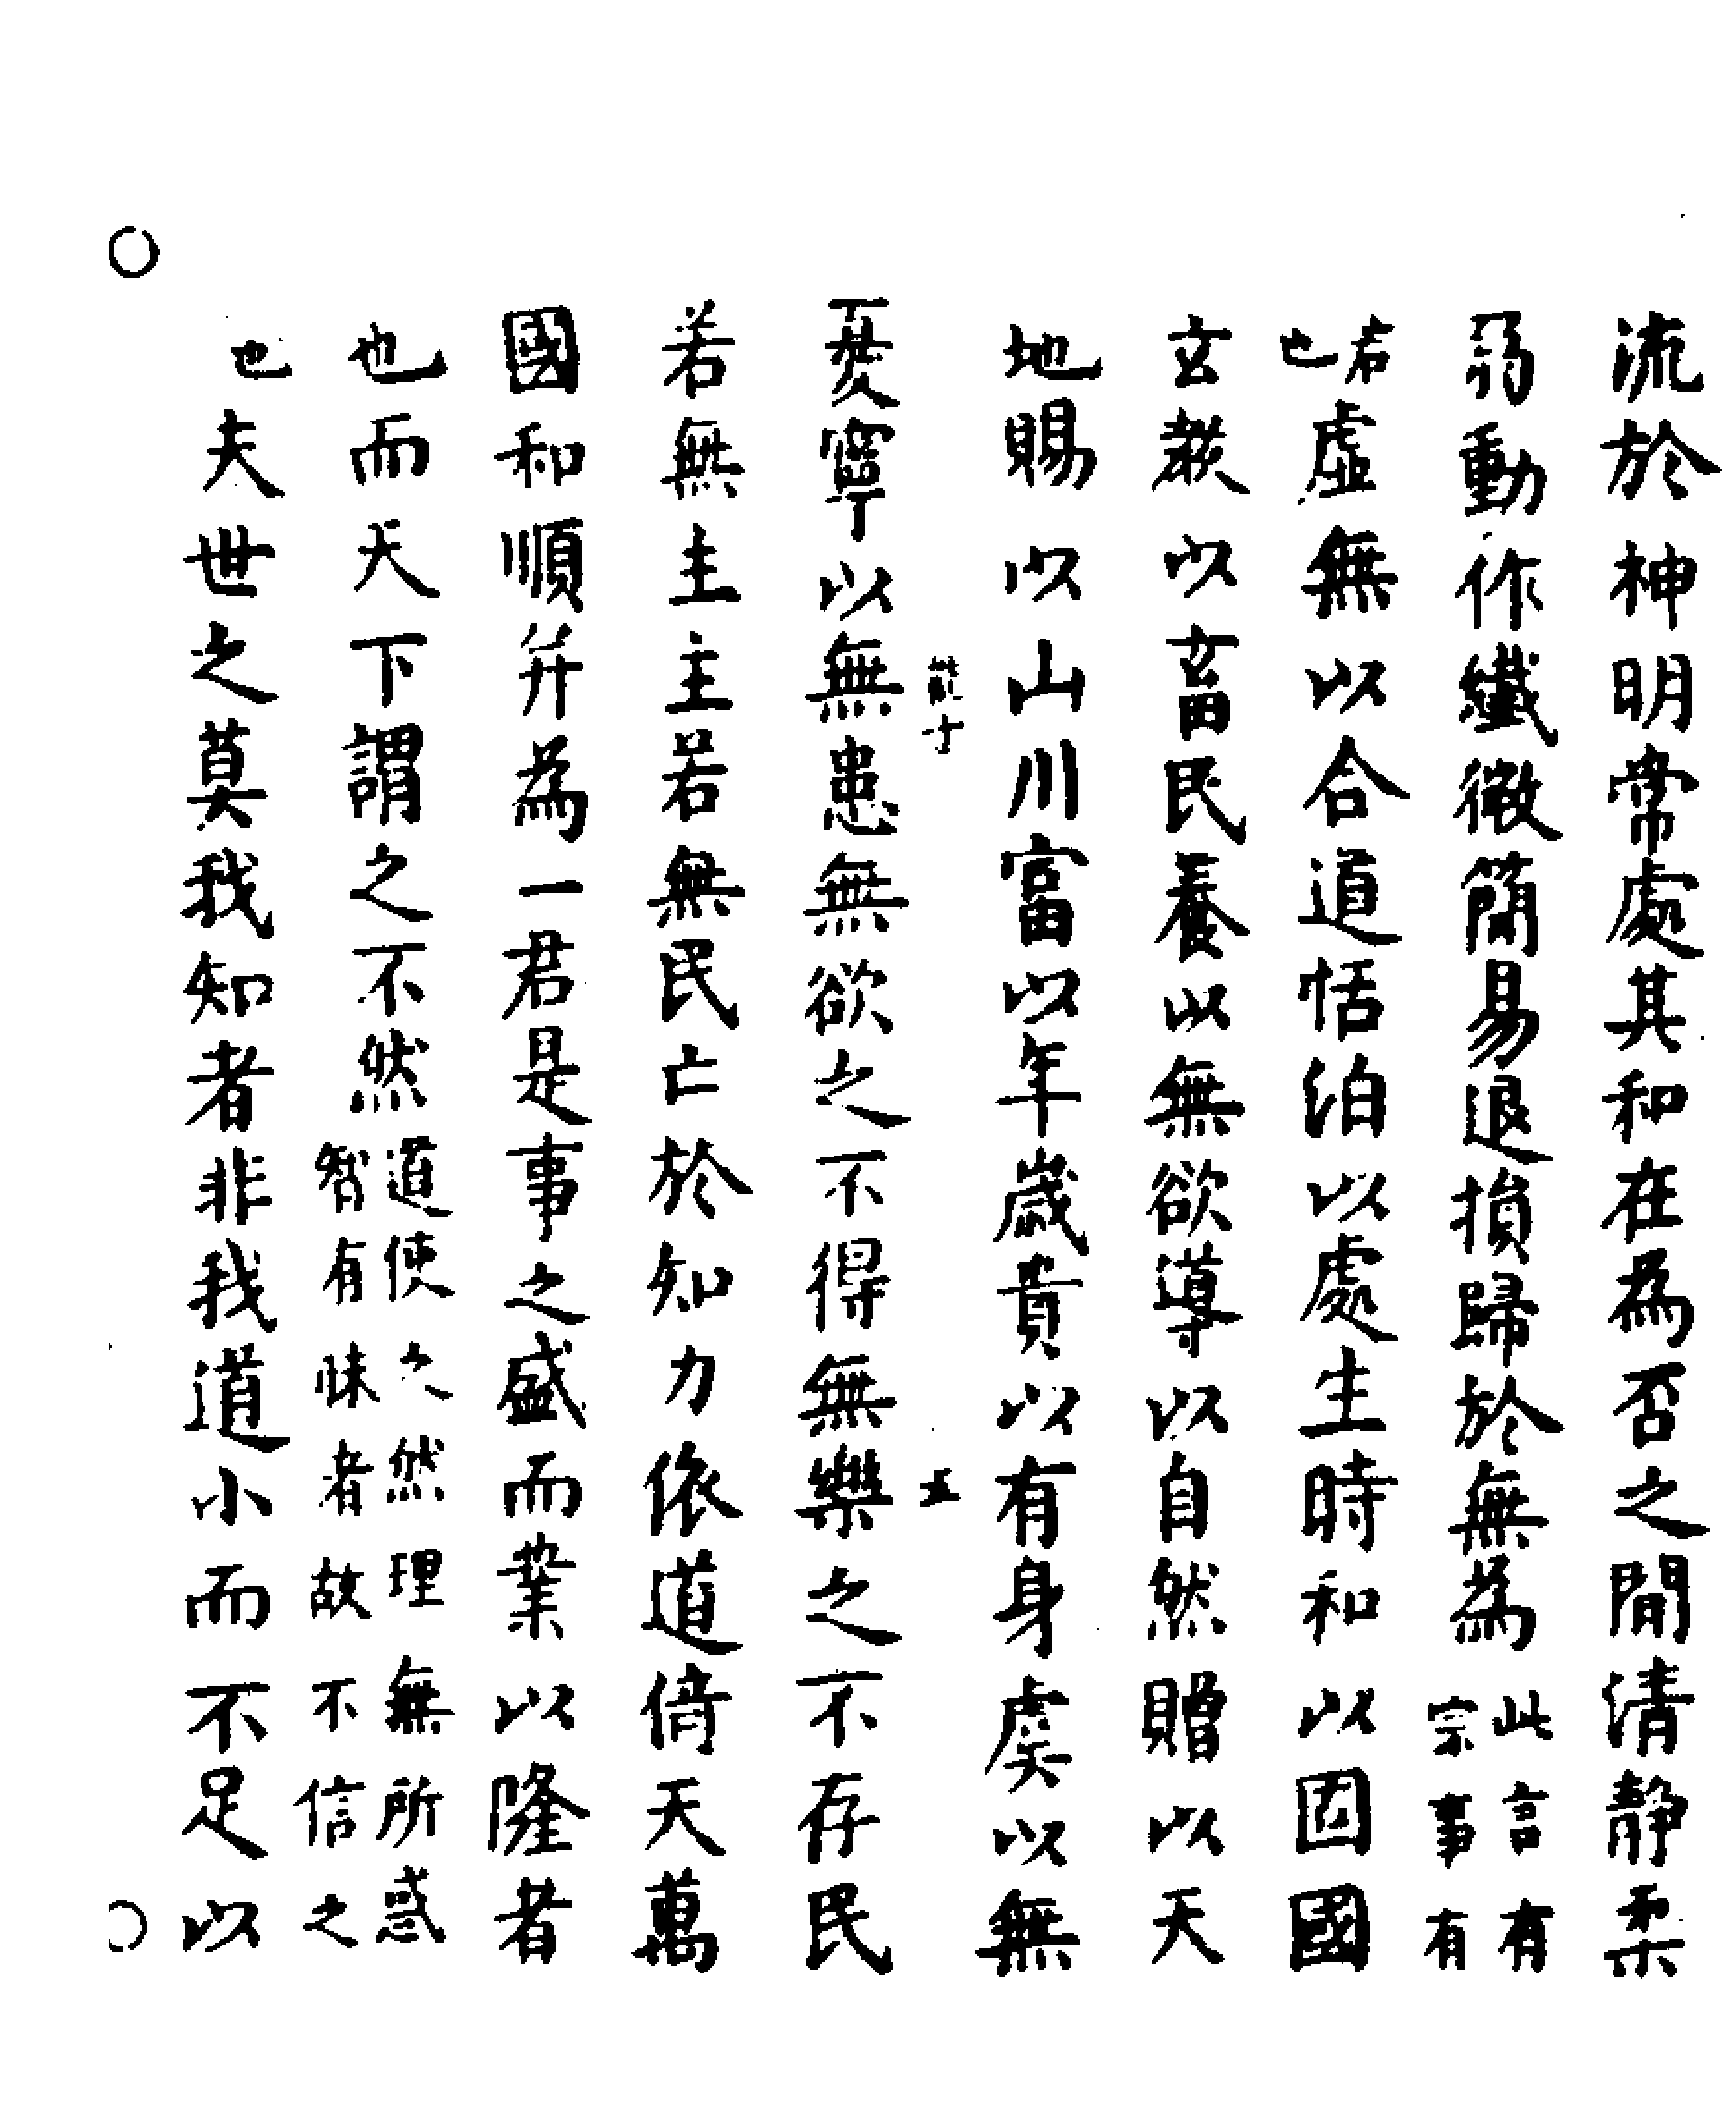 流於神明常處其和在為否之間清靜柔
弱動作纖微簡易退損歸於無為此言有宗事有
君也虛無以合道恬泊以處生時和以固國
玄教以畜民養以無欲導以自然贈以天
地賜以山川富以年歲貴以有身虞以無
五
憂寧以無患無欲之不得無樂之不存民
若無主主若無民亡於知力依道倚天萬
國和順并為一君是事之盛而業以隆者
也而天下謂之不然道使之然理無所惑智有昧者故不信之
也夫世之莫我知者非我道小而不足以